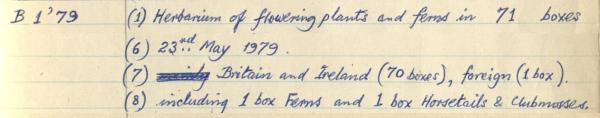 B 1'79 (1) Herbarium of flowering plants and ferns in 71 boxes
(6) 23rd May 1979.
(7) Britain and Ireland (70 boxes), foreign (1 box).
(8) including 1 box Ferns and 1 box Horsetails & Clubmosses.